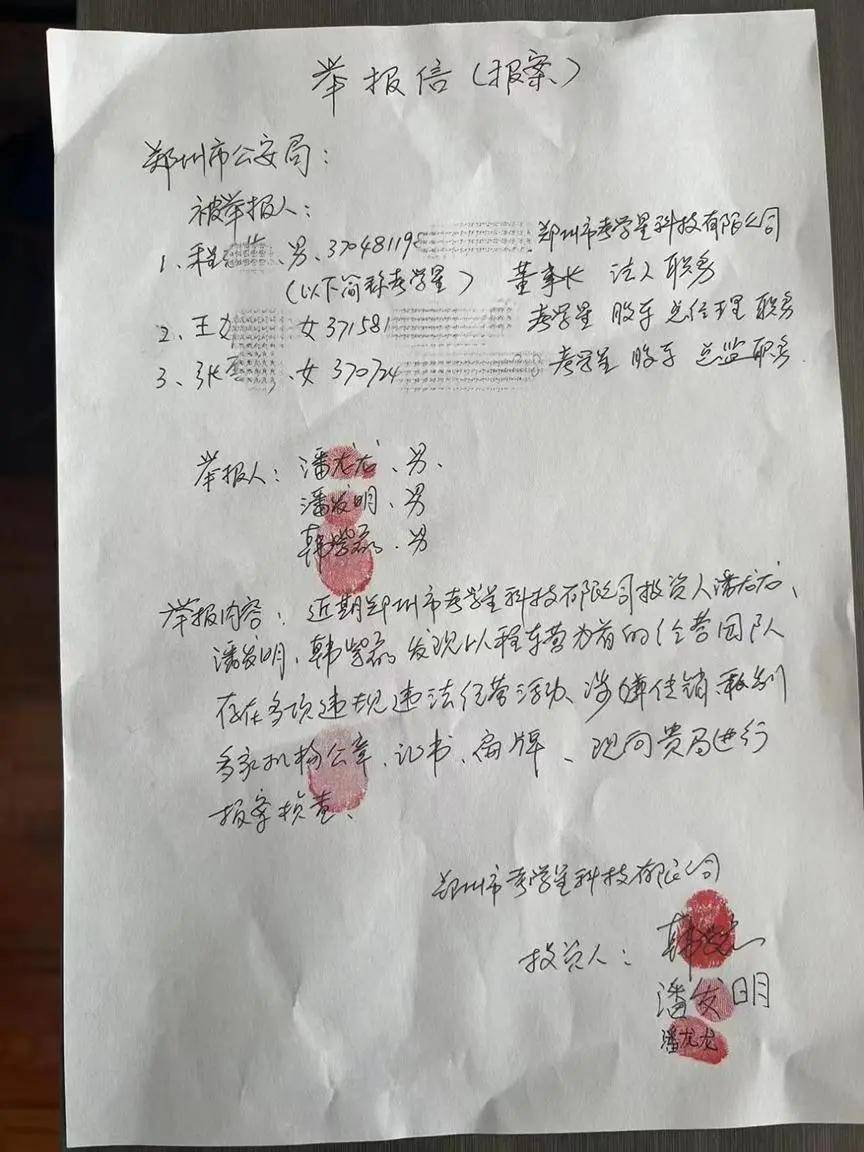 举报信(报案)
郑州市公安局:
被举报人:
1、程 、男、37048119 郑州市考学星科技有限公司
(以下简称考学星) 董事长 法人 职务
2、王 女 371581 考学星 股东 总经理 职务
3、张 、女 370724 考学星 股东 总监职务.
举报人: 潘龙龙、男、
潘发明、男
韩紫磊、男
举报内容: 近期郑州市考学星科技有限公司投资人潘龙龙、
潘发明、韩紫磊 发现以程东营为首的经营团队
存在多项违规违法经营活动、涉嫌传销、私刻
多家机构公章、证书、匾牌、现向贵局进行
报案核查、
郑州市考学星科技有限公司
投资人: 韩
潘发明
潘龙龙